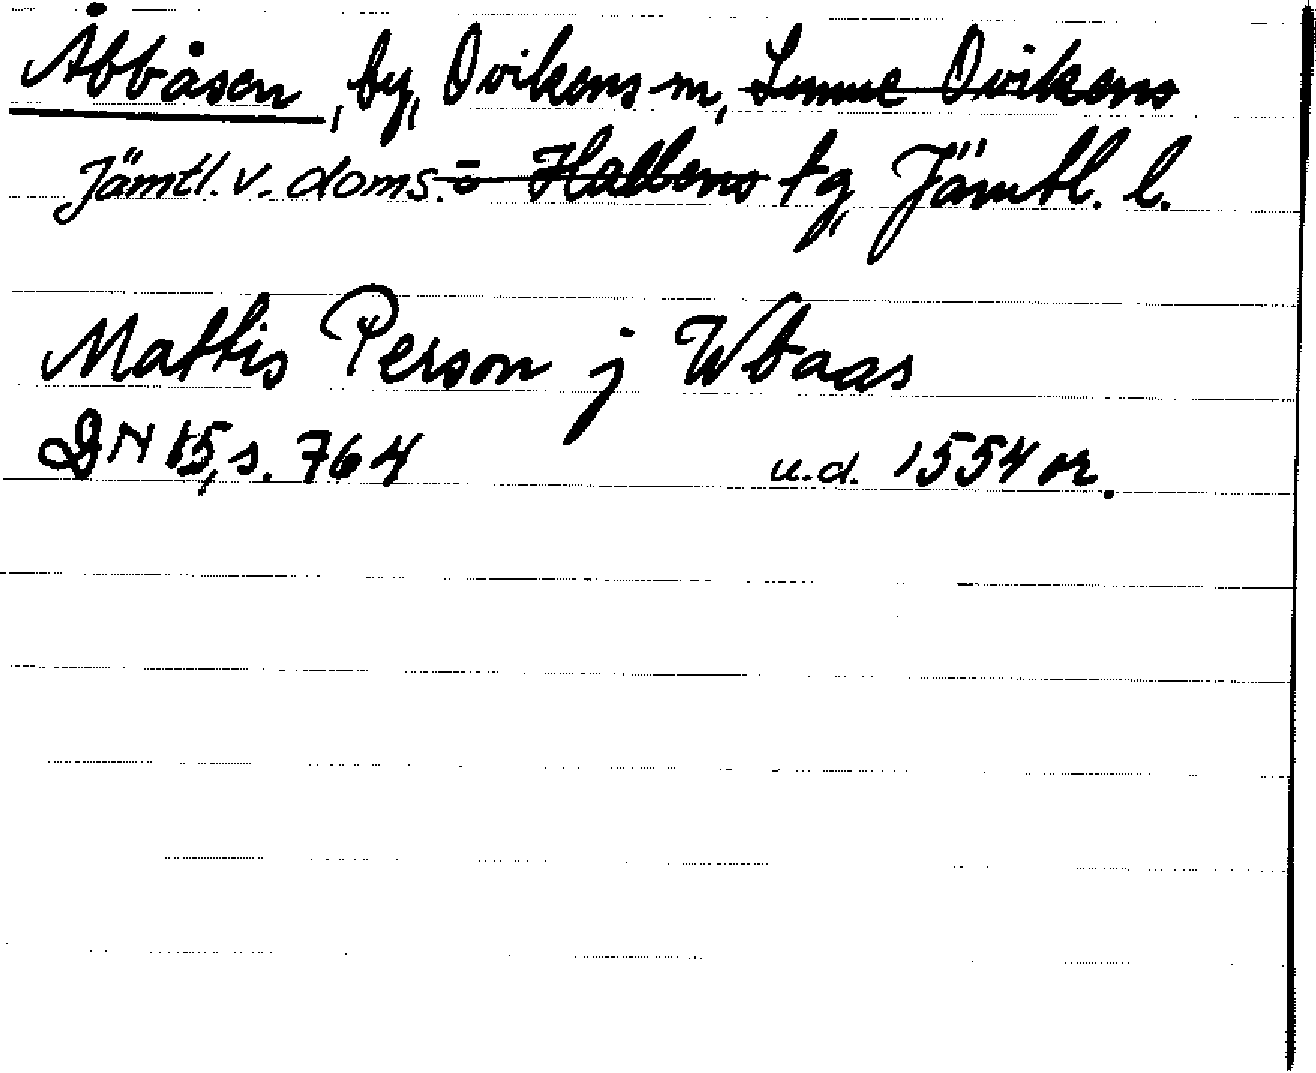 Åbbåsen, by, Ovikens sn, Sunne Ovikens
Jämtl. v. doms. o Hallens tg, Jämtl. l.
Mattis Person j Wbaas
DN 15, s. 764 u.d. 1554 or.